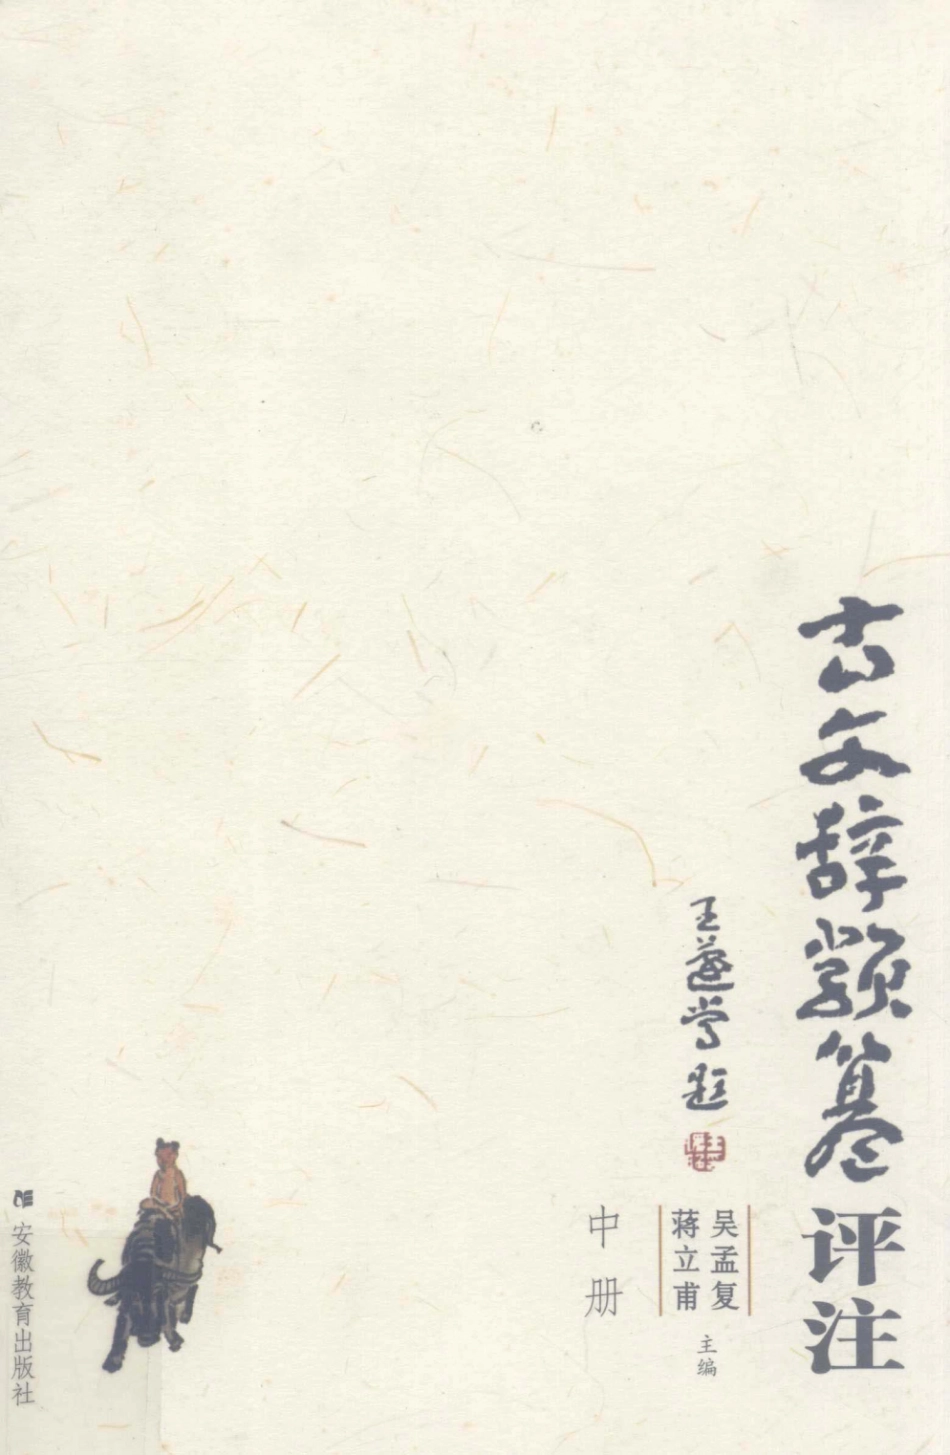 古文辞類纂评注
王蘧常題
吴孟复
蒋立甫
主编
中册
安徽教育出版社